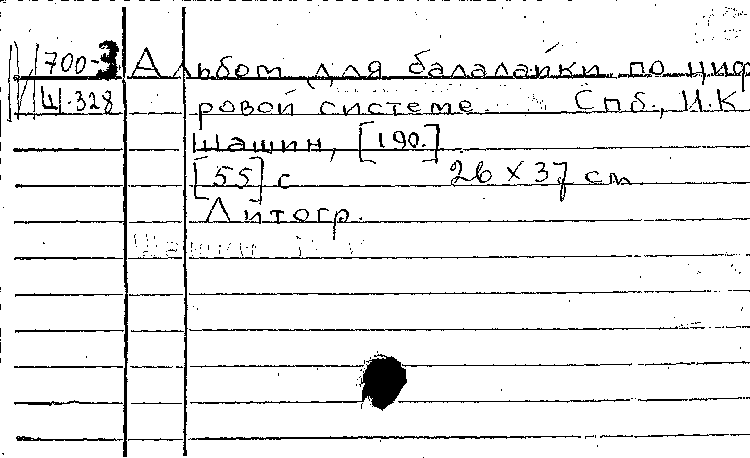 700-3 Альбом для балалайки по циф
Ш-328 ровой системе. Спб., И.К
Шашин, [190.]
[55] с 26 х 37 см
Литогр.